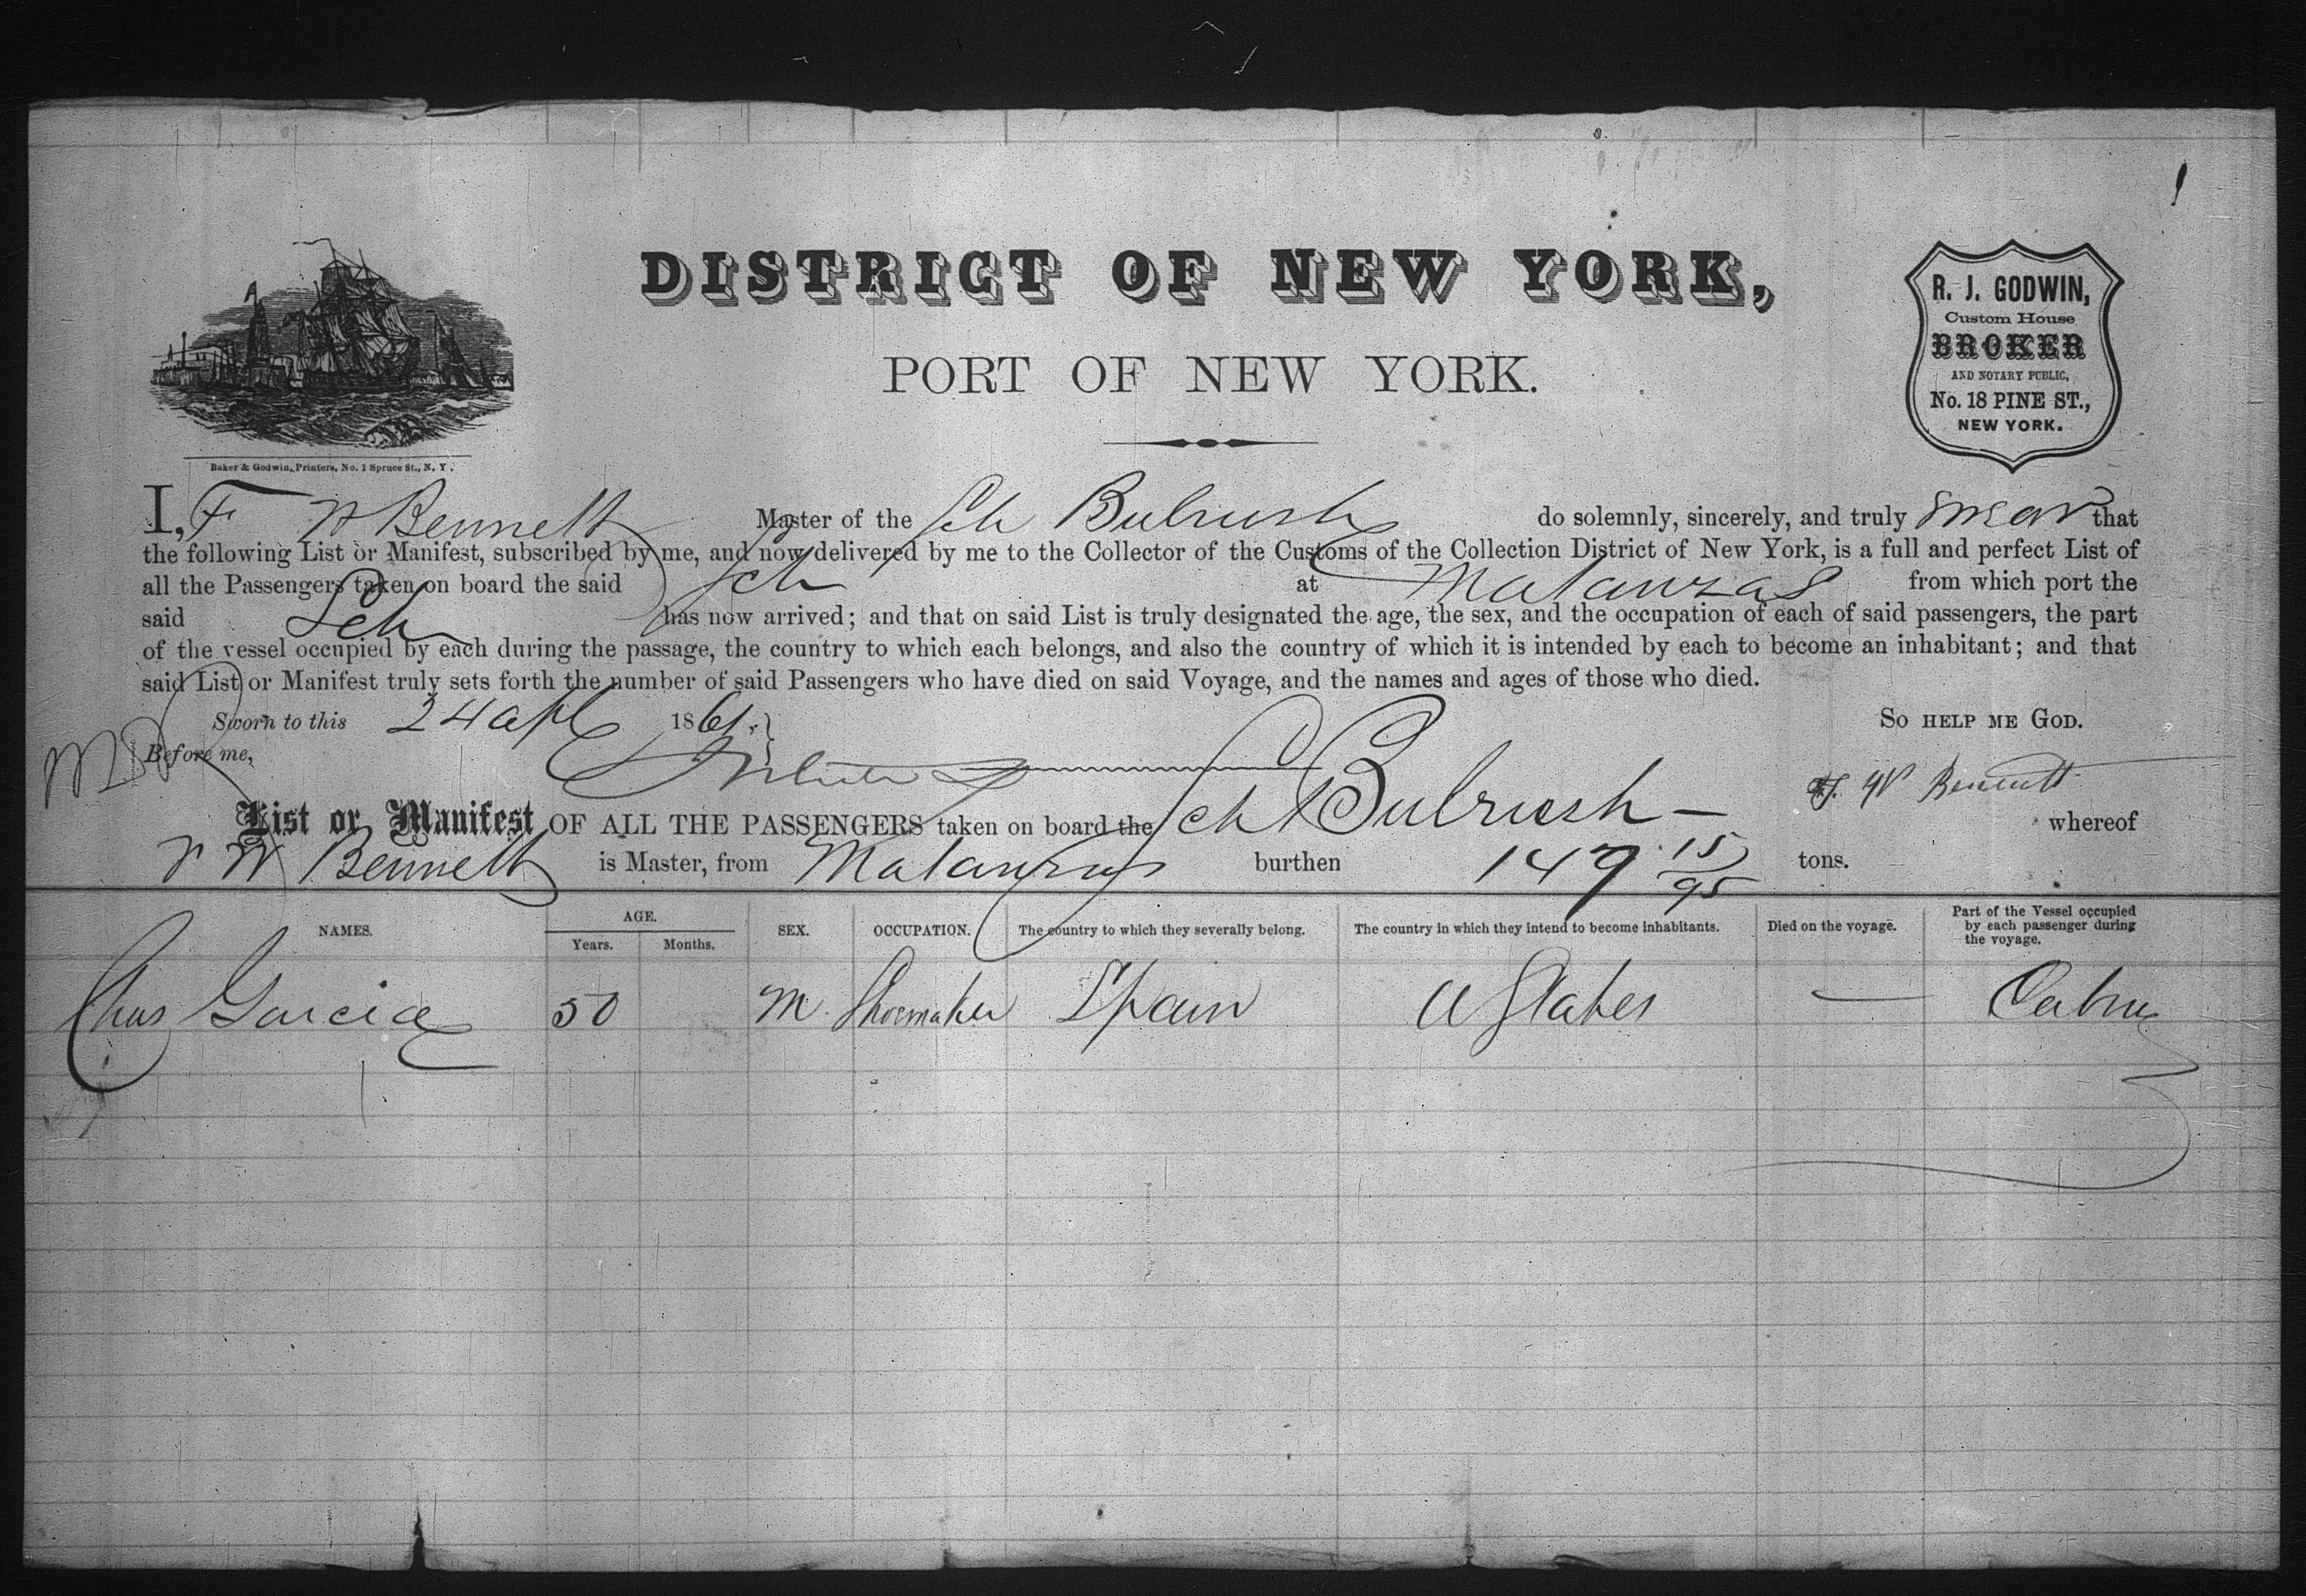 DISTRICT OF NEW YORK,
PORT OF NEW YORK.
R. J. GODWIN,
Custom House
BROKER
AND NOTARY PUBLIC,
No. 18 PINE ST.,
NEW YORK.
Baker & Godwin, Printers, No. 1 Spruce St., N. Y.
I, F W Bennett Master of the Sch Bulrush do solemnly, sincerely, and truly swear that
the following List or Manifest, subscribed by me, and now delivered by me to the Collector of the Customs of the Collection District of New York, is a full and perfect List of
all the Passengers taken on board the said Sch at Matanzas from which port the
said Sch has now arrived; and that on said List is truly designated the age, the sex, and the occupation of each of said passengers, the part
of the vessel occupied by each during the passage, the country to which each belongs, and also the country of which it is intended by each to become an inhabitant; and that
said List or Manifest truly sets forth the number of said Passengers who have died on said Voyage, and the names and ages of those who died.
Sworn to this 24 apl 1861. SO HELP ME GOD.
Before me,
F. W Bennett
List or Manifest OF ALL THE PASSENGERS taken on board the Sch Bulrush — whereof
W Bennett is Master, from Matanzas burthen 149 15/95 tons.
NAMES. AGE. Years. Months. SEX. OCCUPATION. The country to which they severally belong. The country in which they intend to become inhabitants. Died on the voyage. Part of the Vessel occupied by each passenger during the voyage.
Chas Garcia 50 M Shoemaker Spain U States — Cabin